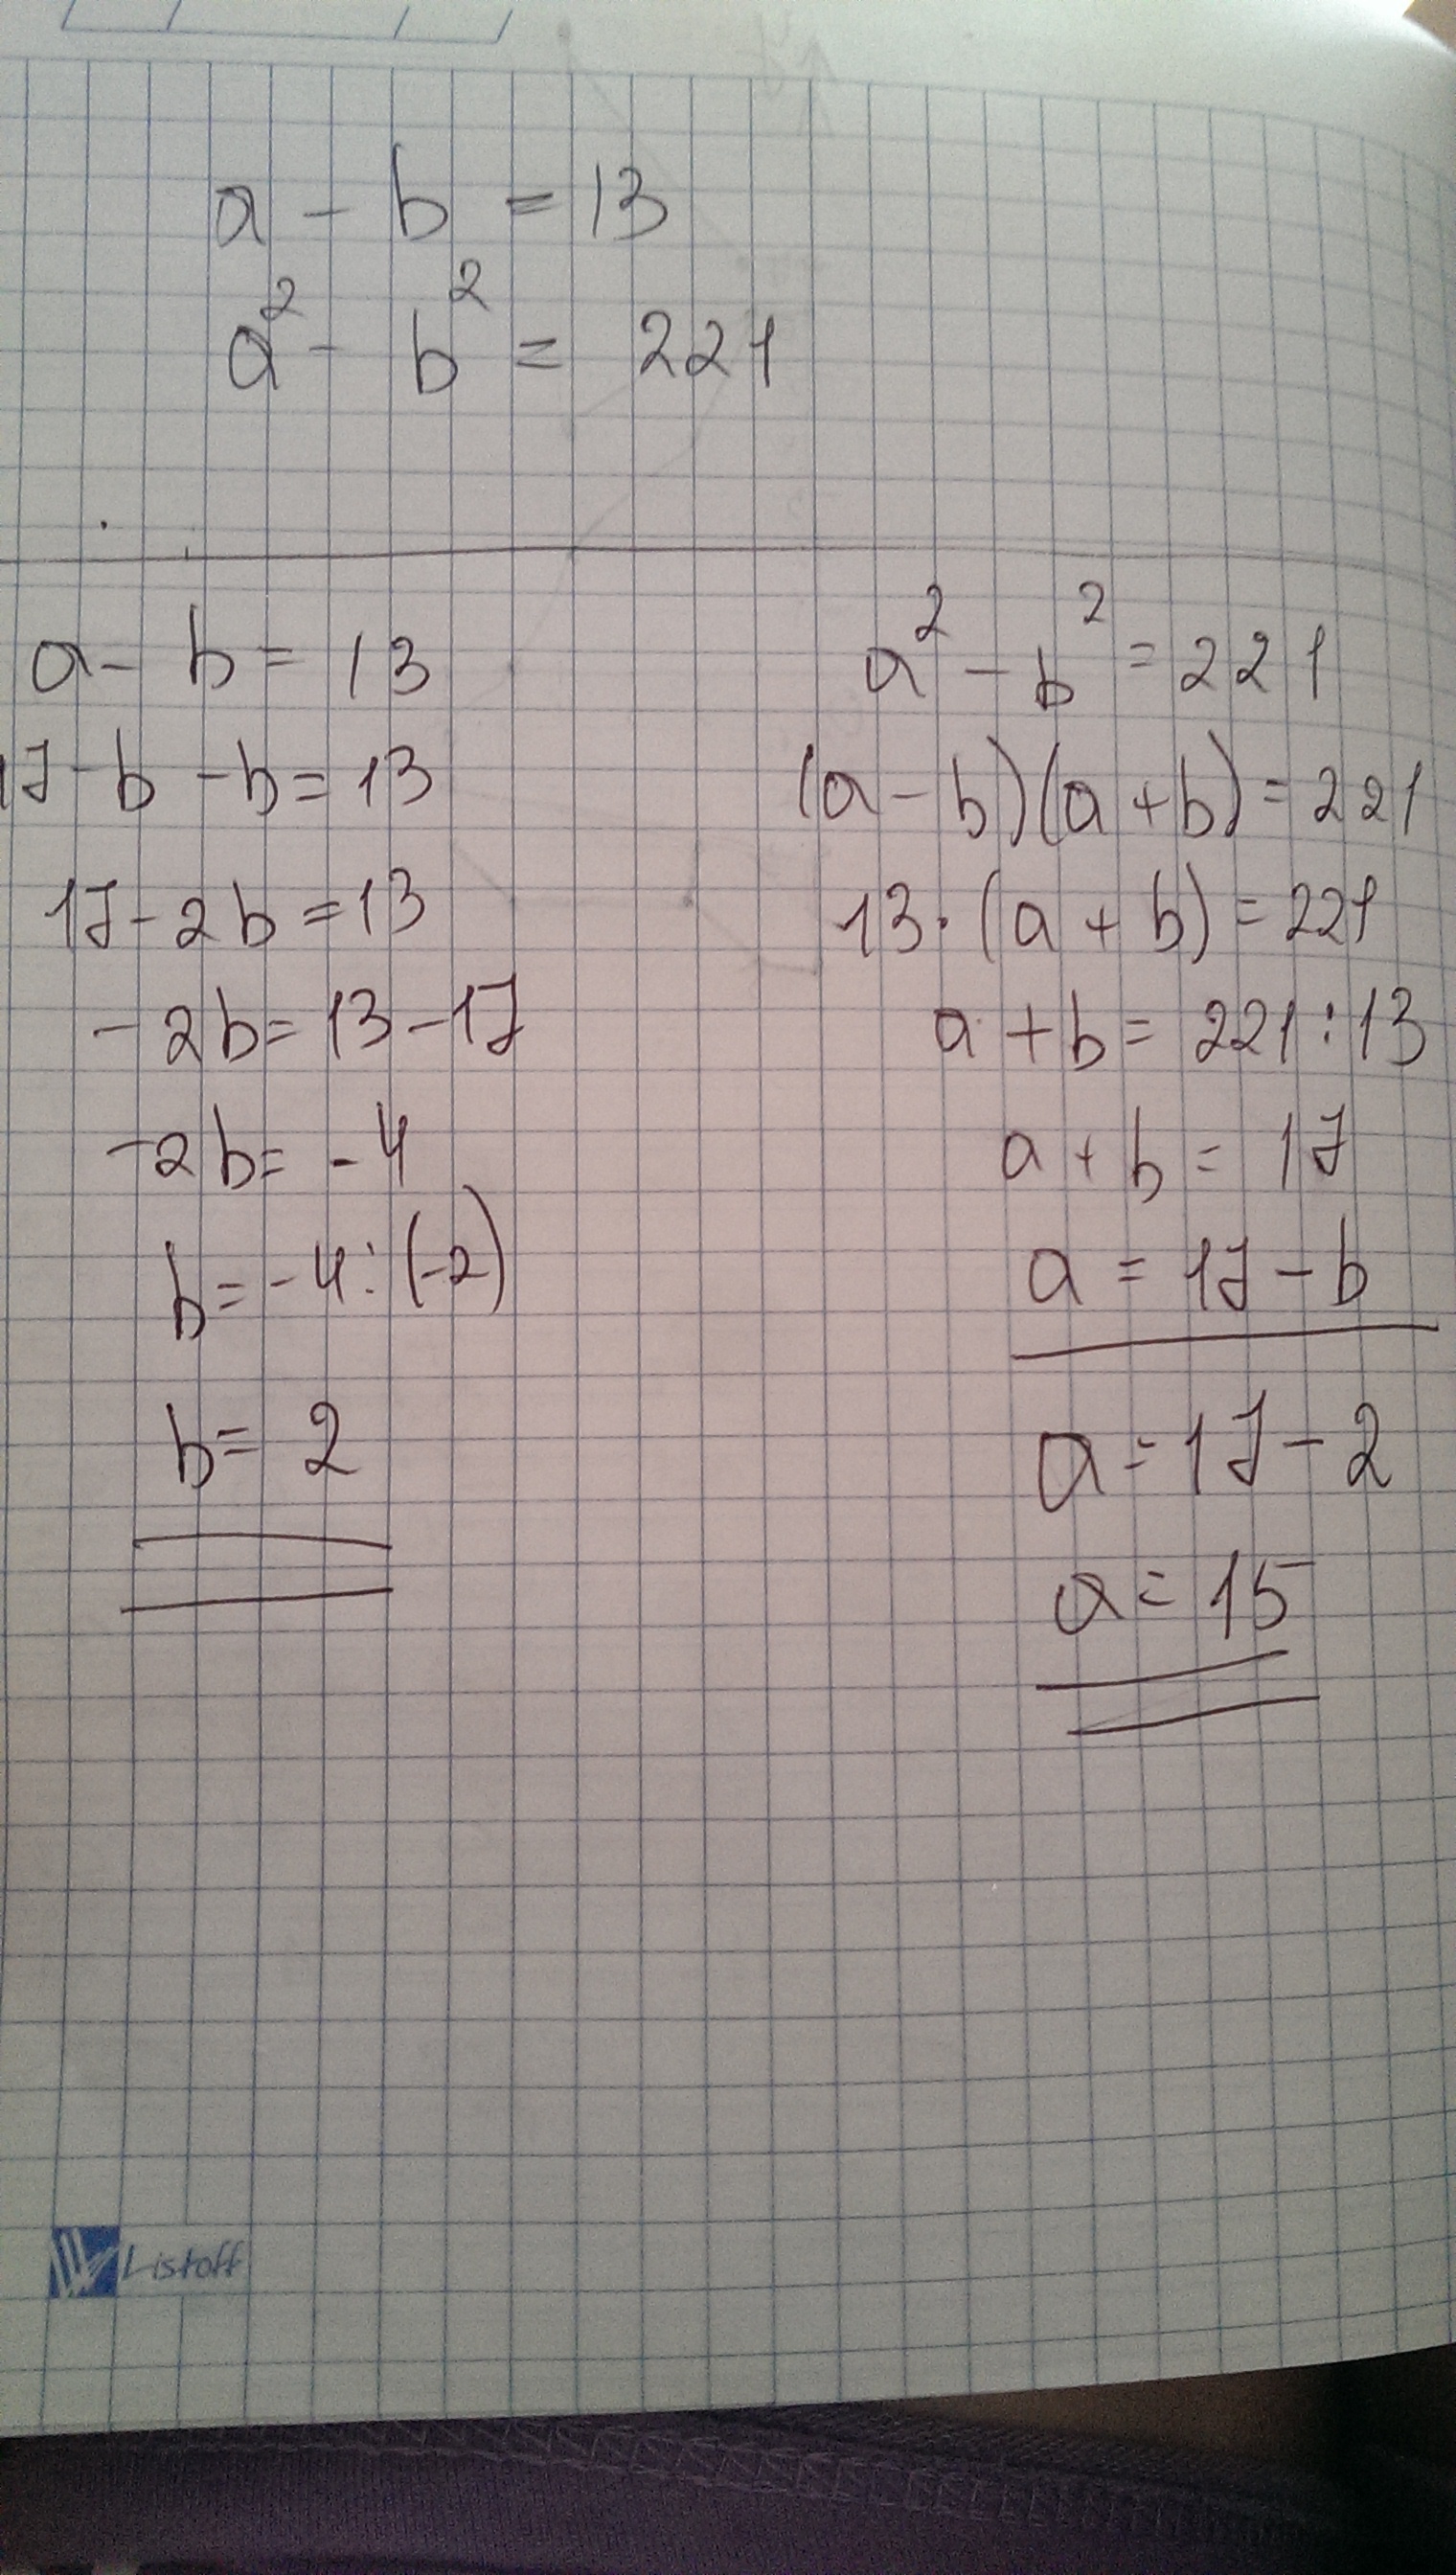 a - b = 13
a² - b² = 221
a - b = 13
17 - b - b = 13
17 - 2b = 13
-2b = 13 - 17
-2b = -4
b = -4 : (-2)
b = 2
a² - b² = 221
(a - b)(a + b) = 221
13 · (a + b) = 221
a + b = 221 : 13
a + b = 17
a = 17 - b
a = 17 - 2
a = 15
Listoff